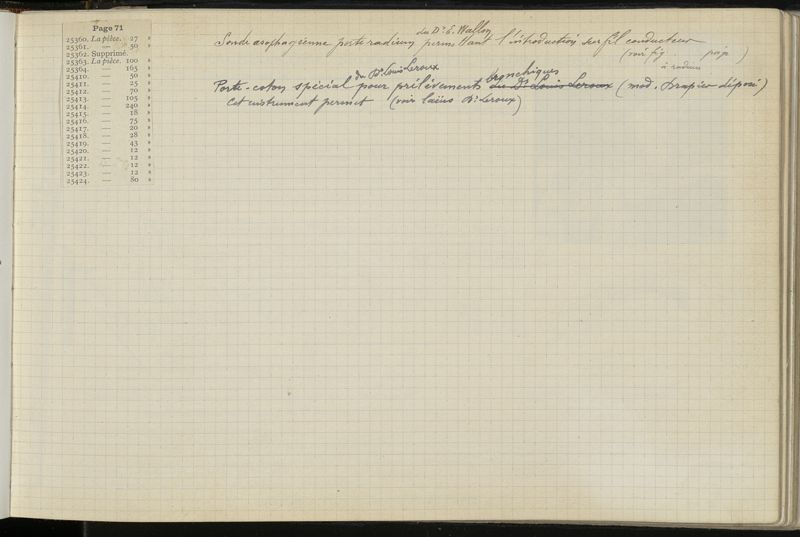 Page 71
25360. La pièce. 27 »
25361. — 50 »
25362. Supprimé
25363. La pièce. 100 »
25364. — 165 »
25410. — 50 »
25411. — 25 »
25412. — 70 »
25413. — 105 »
25414. — 240 »
25415. — 18 »
25416. — 75 »
25417. — 20 »
25418. — 28 »
25419. — 43 »
25420. — 12 »
25421. — 12 »
25422. — 12 »
25423. — 12 »
25424. — 80 »
du Dr. E. Wallon
Sonde œsophagienne porte radium permettant l'introduction sur fil conducteur
(voir fig page )
à réduire
du Dr. Louis Leroux bronchiques
Porte-coton spécial pour prélèvements du Dr Louis Leroux (mod. Drapier déposé)
Cet instrument permet (voir laïus Dr. Leroux)